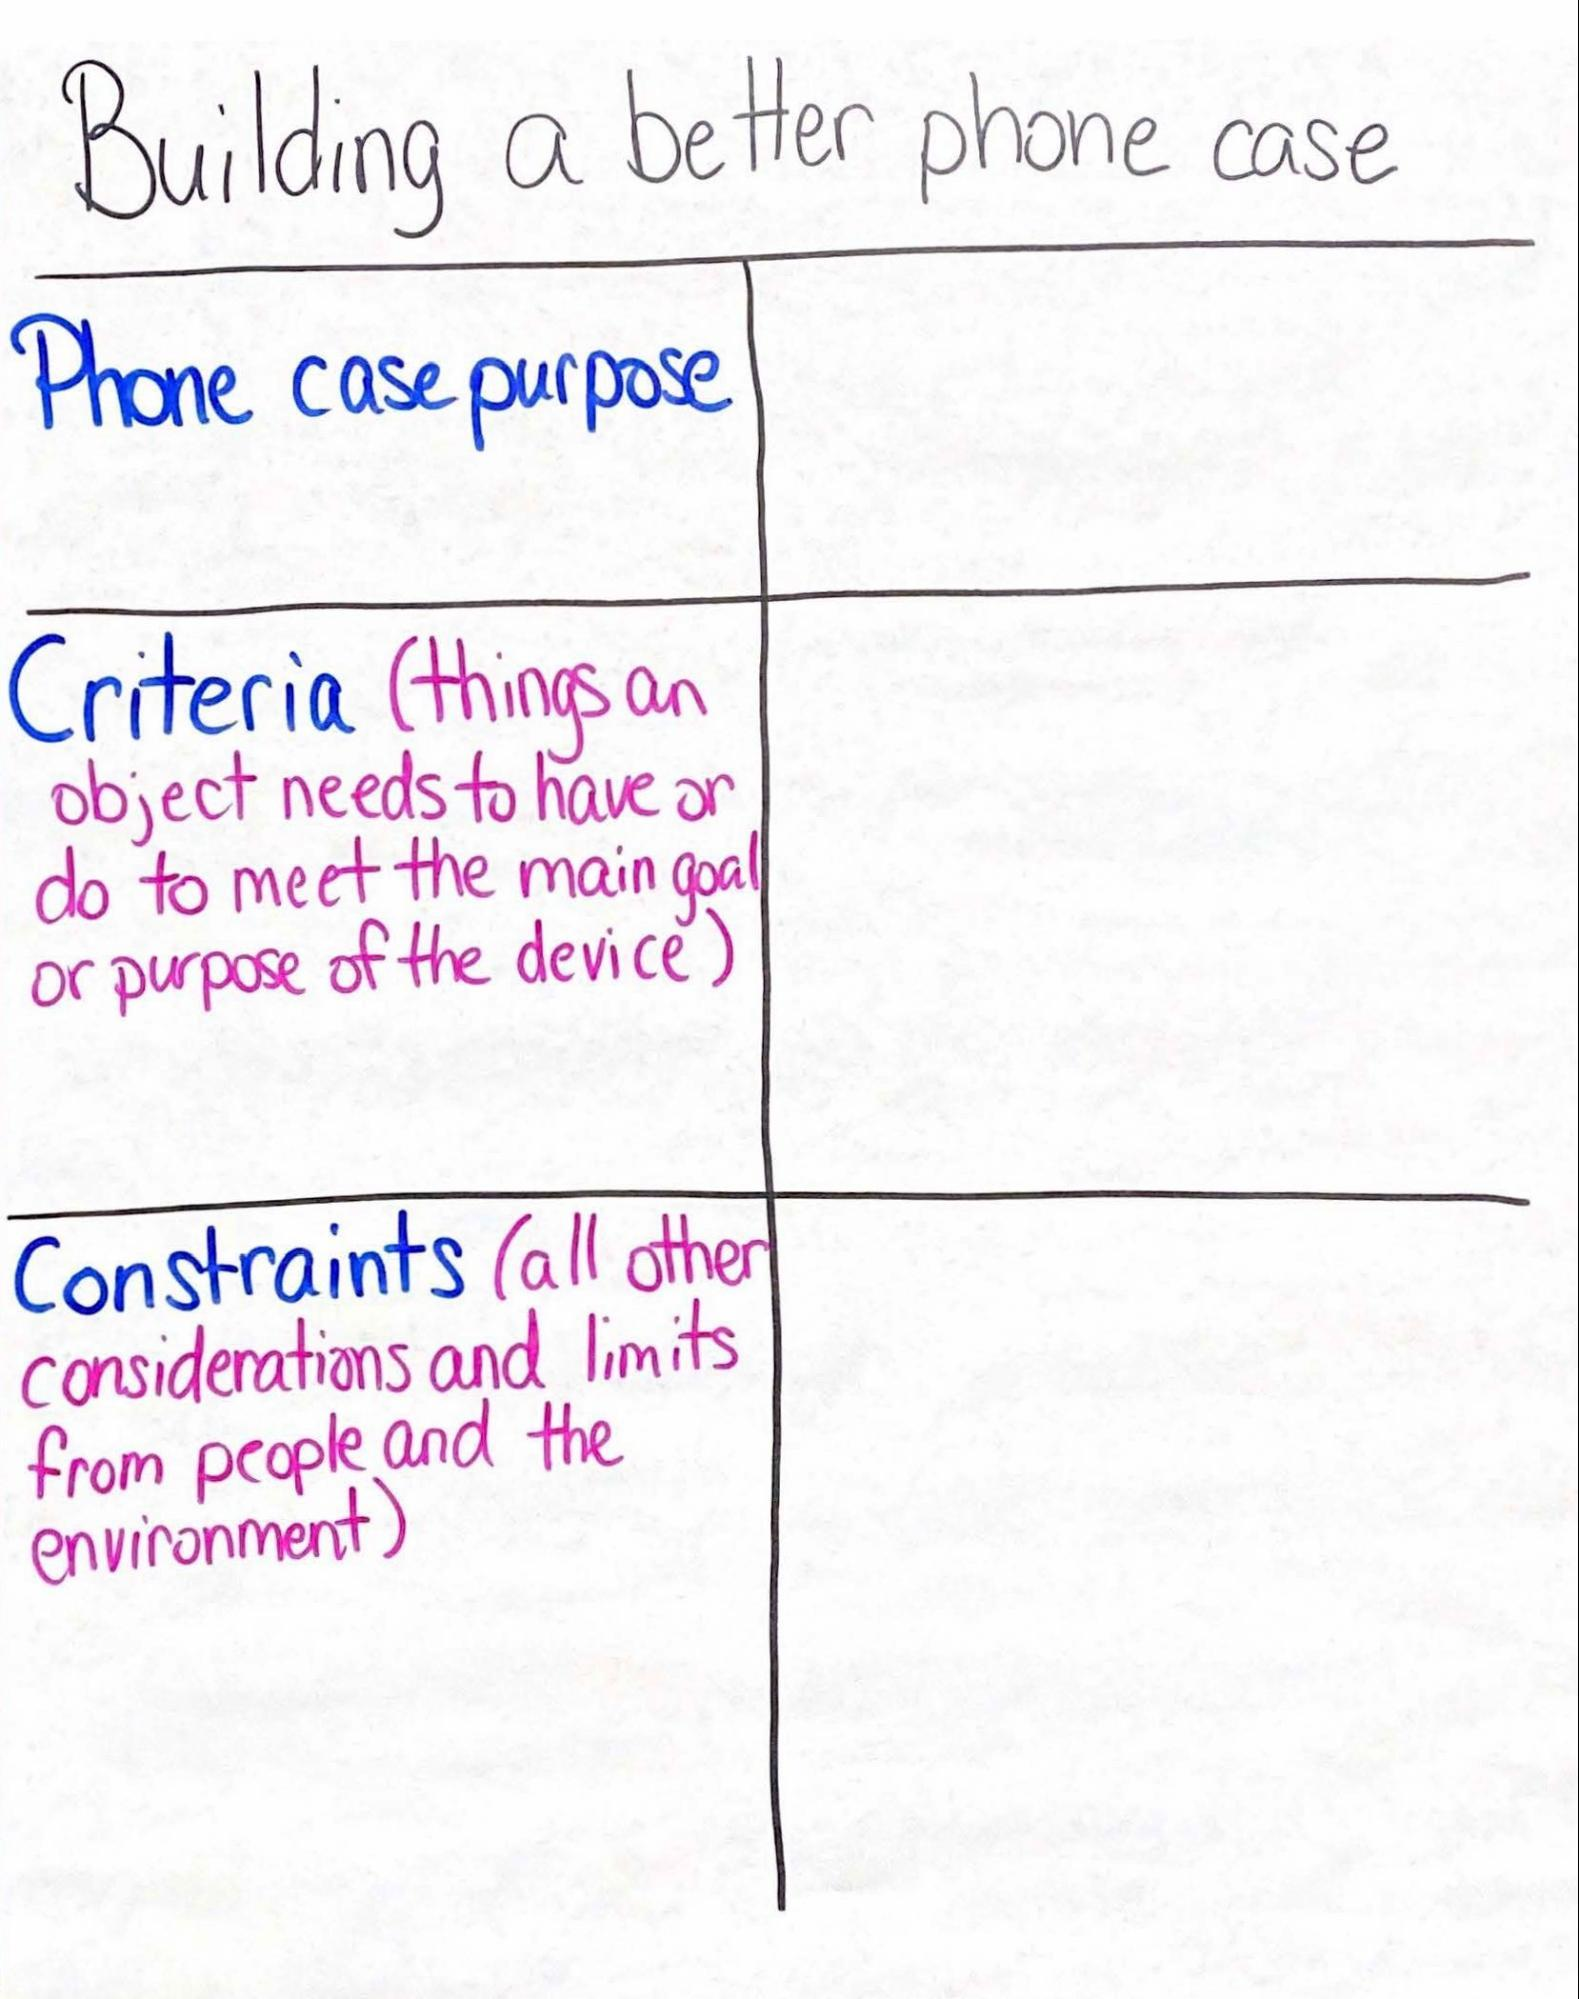 Building a better phone case
Phone case purpose
Criteria (things an
object needs to have or
do to meet the main goal
or purpose of the device)
Constraints (all other
considerations and limits
from people and the
environment)